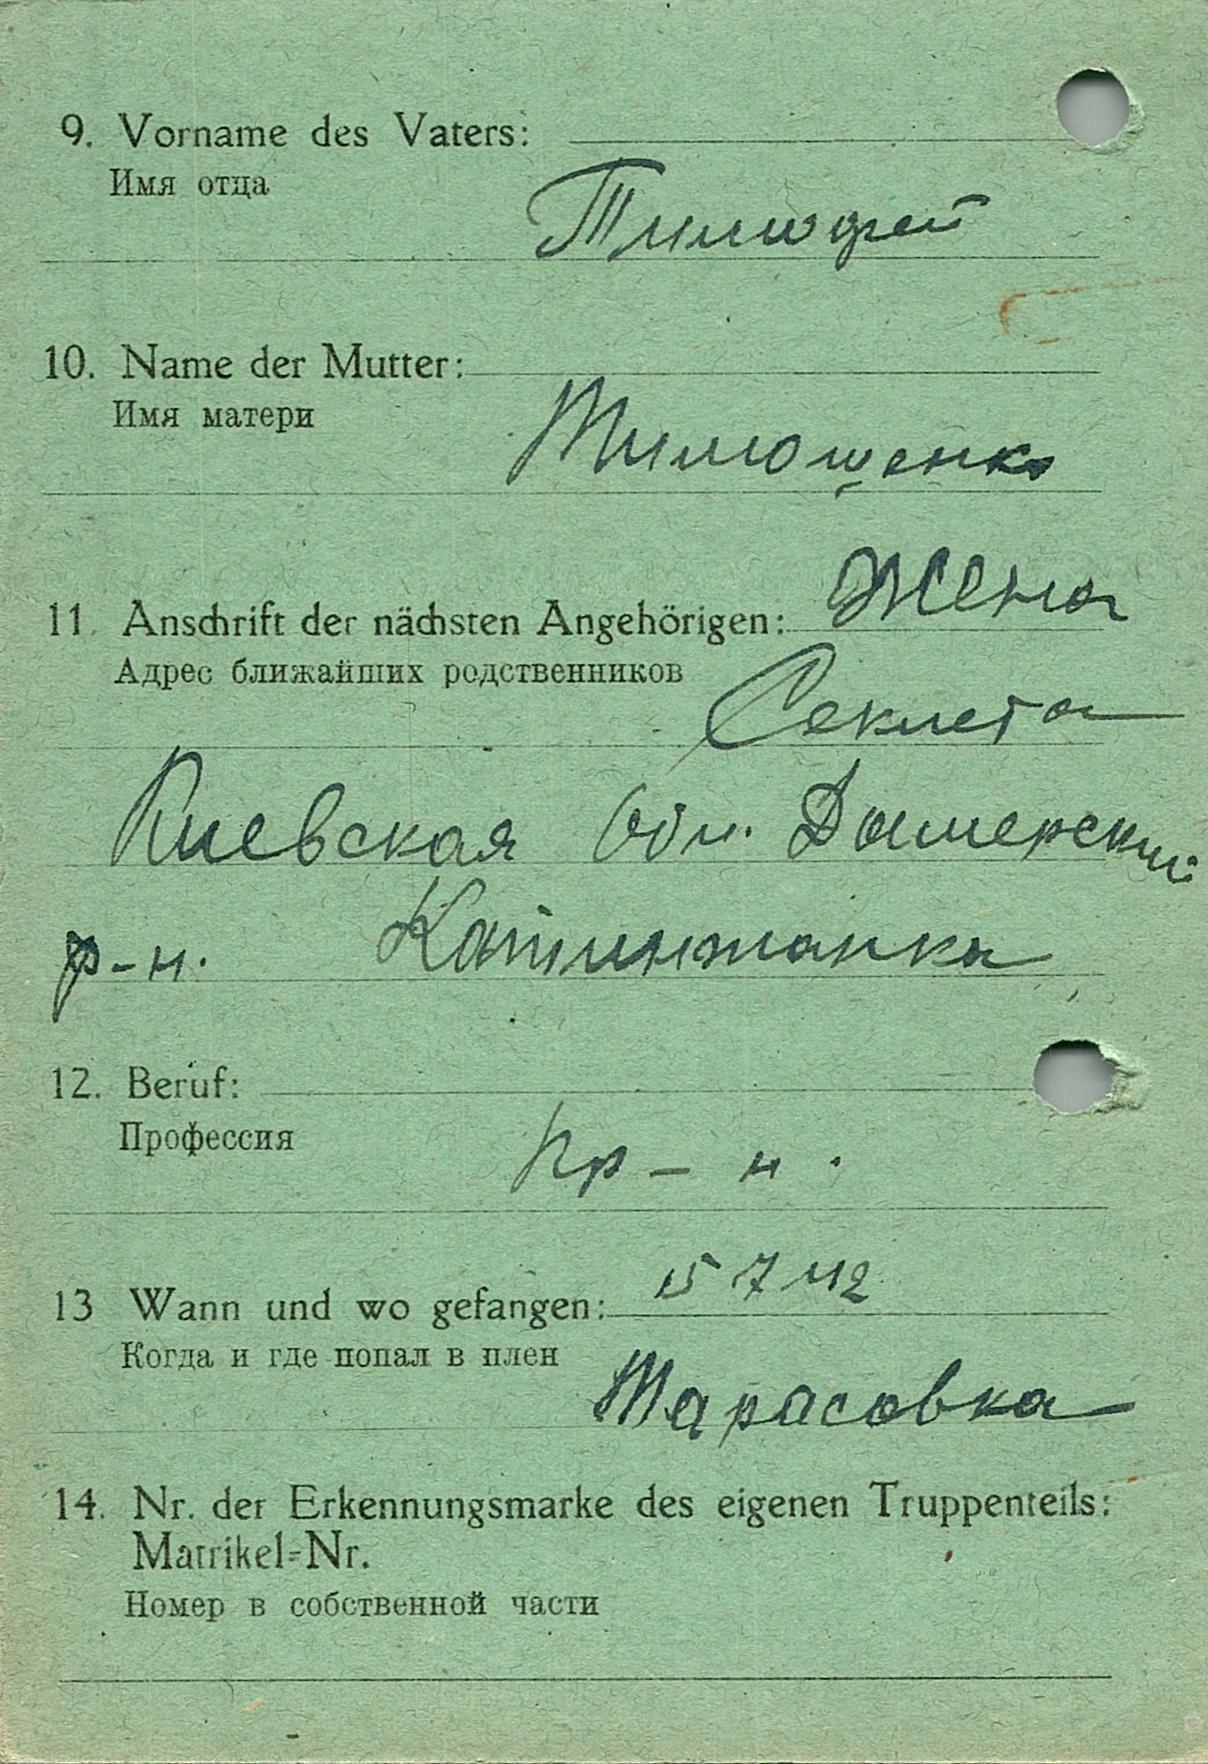 9. Vorname des Vaters:
Имя отца
Тимофей
10. Name der Mutter:
Имя матери
Тимошенко
11. Anschrift der nächsten Angehörigen: Жена
Адрес ближайших родственников
Секлета
Киевская обл. Дымерский
р-н. Катюжанка
12. Beruf:
Профессия
кр-н.
13 Wann und wo gefangen: 15 7 42
Когда и где попал в плен
Тарасовка
14. Nr. der Erkennungsmarke des eigenen Truppenteils:
Matrikel-Nr.
Номер в собственной части